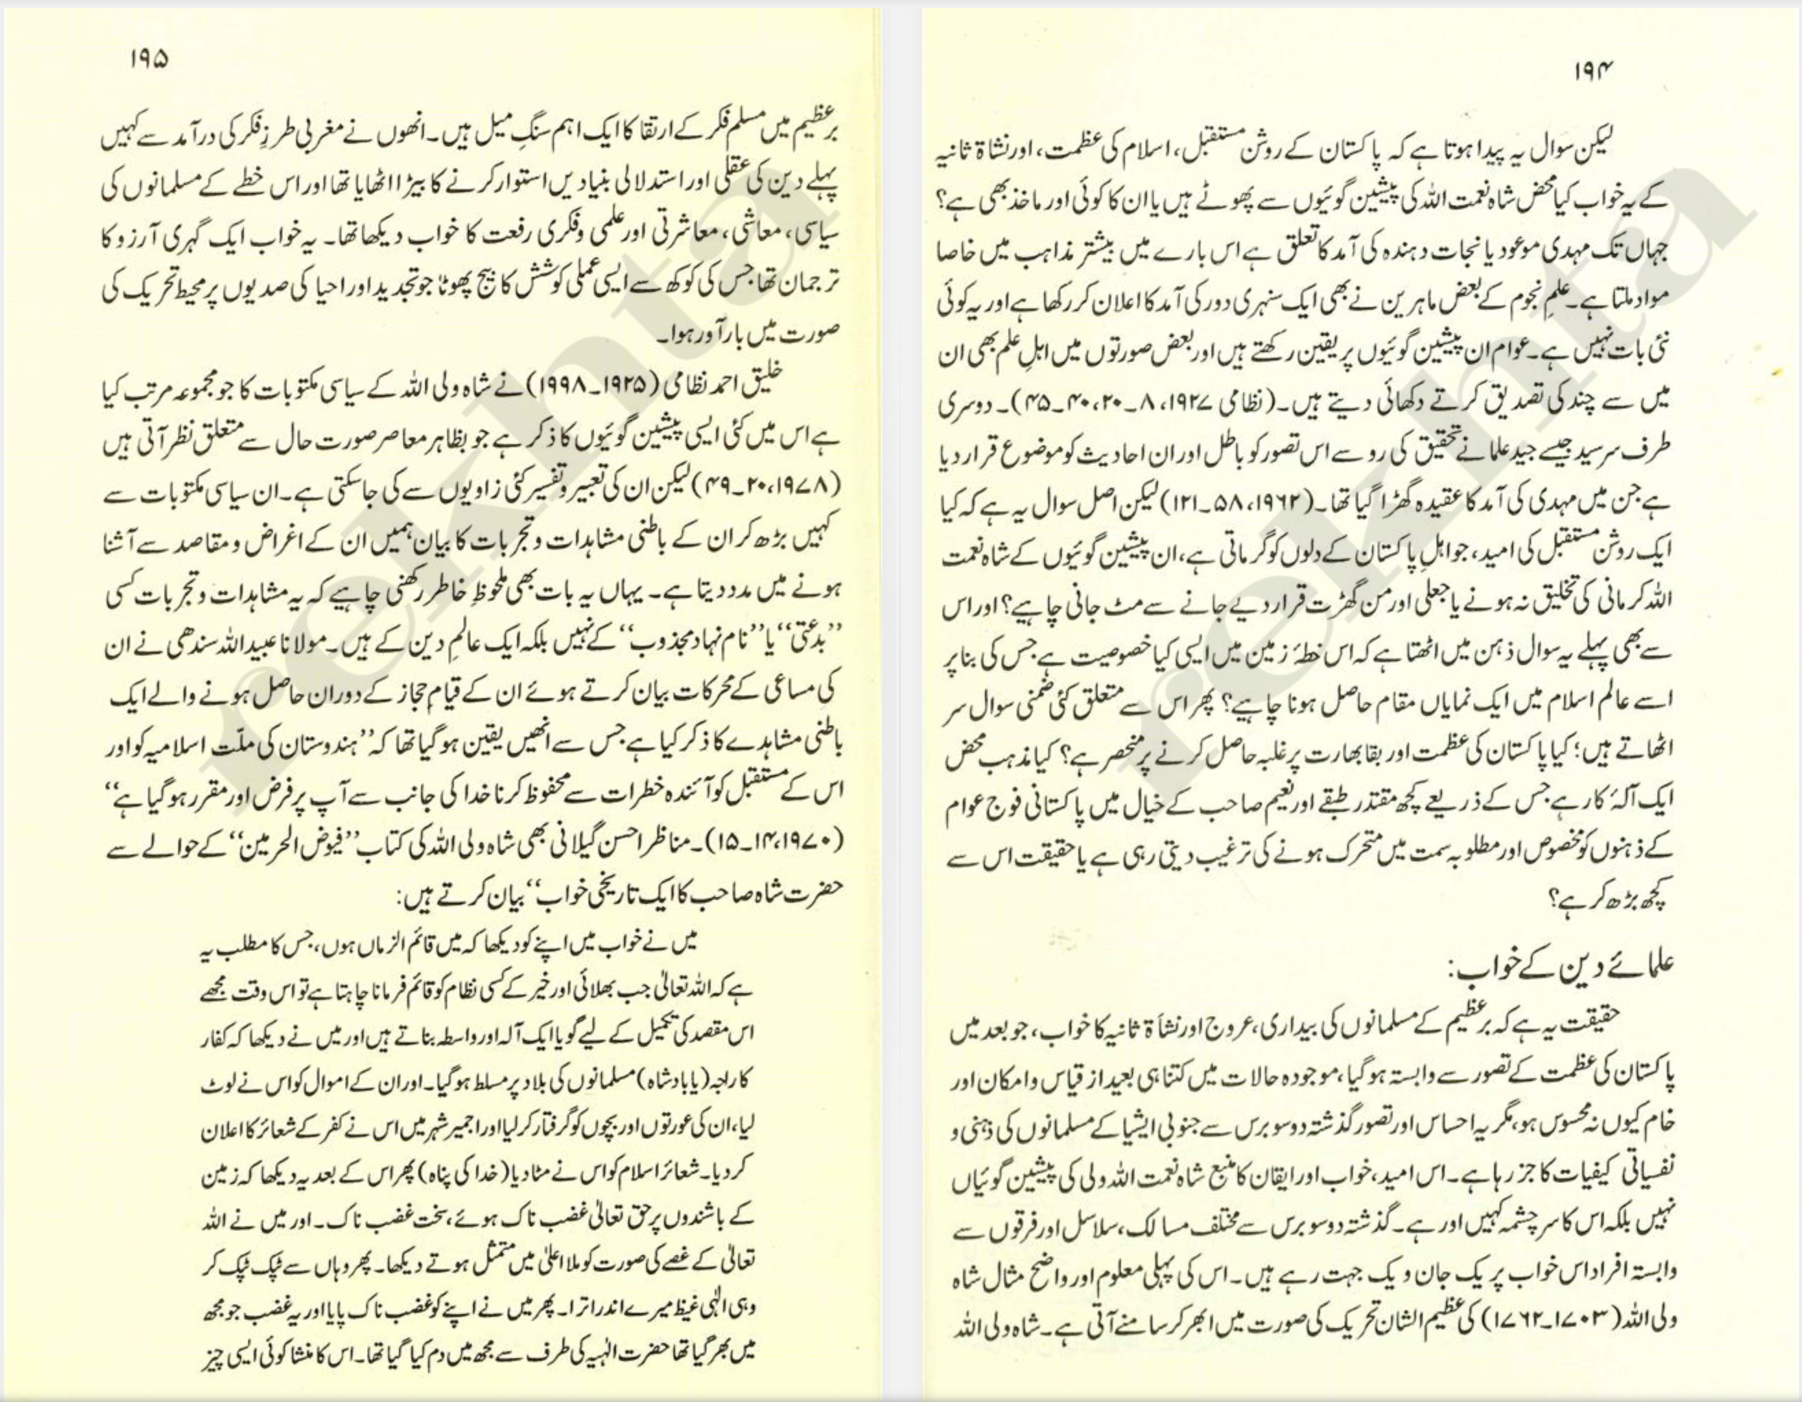 ۱۹۴
لیکن سوال یہ پیدا ہوتا ہے کہ پاکستان کے روشن مستقبل، اسلام کی عظمت، اور نشاۃ ثانیہ
کے یہ خواب کیا محض شاہ نعمت اللہ کی پیشین گوئیوں سے پھوٹے ہیں یا ان کا کوئی اور ماخذ بھی ہے؟
جہاں تک مہدی موعود یا نجات دہندہ کی آمد کا تعلق ہے اس بارے میں بیشتر مذاہب میں خاصا
مواد ملتا ہے۔ علمِ نجوم کے بعض ماہرین نے بھی ایک سنہری دور کی آمد کا اعلان کر رکھا ہے اور یہ کوئی
نئی بات نہیں ہے۔ عوام ان پیشین گوئیوں پر یقین رکھتے ہیں اور بعض صورتوں میں اہلِ علم بھی ان
میں سے چند کی تصدیق کرتے دکھائی دیتے ہیں۔ (نظامی ۱۹۲۷، ۸۔۲۰، ۴۰۔۴۵)۔ دوسری
طرف سرسید جیسے جید علما نے تحقیق کی رو سے اس تصور کو باطل اور ان احادیث کو موضوع قرار دیا
ہے جن میں مہدی کی آمد کا عقیدہ گھڑا گیا تھا۔ (۱۹۶۲، ۵۸۔۱۲۱) لیکن اصل سوال یہ ہے کہ کیا
ایک روشن مستقبل کی امید، جو اہلِ پاکستان کے دلوں کو گرماتی ہے، ان پیشین گوئیوں کے شاہ نعمت
اللہ کرمانی کی تخلیق نہ ہونے یا جعلی اور من گھڑت قرار دیے جانے سے مٹ جانی چاہیے؟ اور اس
سے بھی پہلے یہ سوال ذہن میں اٹھتا ہے کہ اس خطۂ زمین میں ایسی کیا خصوصیت ہے جس کی بنا پر
اسے عالم اسلام میں ایک نمایاں مقام حاصل ہونا چاہیے؟ پھر اس سے متعلق کئی ضمنی سوال سر
اٹھاتے ہیں؛ کیا پاکستان کی عظمت اور بقا بھارت پر غلبہ حاصل کرنے پر منحصر ہے؟ کیا مذہب محض
ایک آلۂ کار ہے جس کے ذریعے کچھ مقتدر طبقے اور نعیم صاحب کے خیال میں پاکستانی فوج عوام
کے ذہنوں کو مخصوص اور مطلوبہ سمت میں متحرک ہونے کی ترغیب دیتی رہی ہے یا حقیقت اس سے
کچھ بڑھ کر ہے؟
علمائے دین کے خواب:
حقیقت یہ ہے کہ برعظیم کے مسلمانوں کی بیداری، عروج اور نشاۃ ثانیہ کا خواب، جو بعد میں
پاکستان کی عظمت کے تصور سے وابستہ ہو گیا، موجودہ حالات میں کتنا ہی بعید از قیاس و امکان اور
خام کیوں نہ محسوس ہو، مگر یہ احساس اور تصور گذشتہ دو سو برس سے جنوبی ایشیا کے مسلمانوں کی ذہنی و
نفسیاتی کیفیات کا جز رہا ہے۔ اس امید، خواب اور ایقان کا منبع شاہ نعمت اللہ ولی کی پیشین گوئیاں
نہیں بلکہ اس کا سرچشمہ کہیں اور ہے۔ گذشتہ دو سو برس سے مختلف مسالک، سلاسل اور فرقوں سے
وابستہ افراد اس خواب پر یک جان و یک جہت رہے ہیں۔ اس کی پہلی معلوم اور واضح مثال شاہ
ولی اللہ (۱۷۰۳۔۱۷۶۲) کی عظیم الشان تحریک کی صورت میں ابھر کر سامنے آتی ہے۔ شاہ ولی اللہ
۱۹۵
برعظیم میں مسلم فکر کے ارتقا کا ایک اہم سنگِ میل ہیں۔ انھوں نے مغربی طرزِ فکر کی درآمد سے کہیں
پہلے دین کی عقلی اور استدلالی بنیادیں استوار کرنے کا بیڑا اٹھایا تھا اور اس خطے کے مسلمانوں کی
سیاسی، معاشی، معاشرتی اور علمی و فکری رفعت کا خواب دیکھا تھا۔ یہ خواب ایک گہری آرزو کا
ترجمان تھا جس کی کوکھ سے ایسی عملی کوشش کا بیج پھوٹا جو تجدید اور احیا کی صدیوں پر محیط تحریک کی
صورت میں بارآور ہوا۔
خلیق احمد نظامی (۱۹۲۵۔۱۹۹۸) نے شاہ ولی اللہ کے سیاسی مکتوبات کا جو مجموعہ مرتب کیا
ہے اس میں کئی ایسی پیشین گوئیوں کا ذکر ہے جو بظاہر معاصر صورت حال سے متعلق نظر آتی ہیں
(۱۹۷۸، ۲۰۔۴۹) لیکن ان کی تعبیر و تفسیر کئی زاویوں سے کی جا سکتی ہے۔ ان سیاسی مکتوبات سے
کہیں بڑھ کر ان کے باطنی مشاہدات و تجربات کا بیان ہمیں ان کے اغراض و مقاصد سے آشنا
ہونے میں مدد دیتا ہے۔ یہاں یہ بات بھی ملحوظِ خاطر رکھنی چاہیے کہ یہ مشاہدات و تجربات کسی
’’بدعتی‘‘ یا ’’نام نہاد مجذوب‘‘ کے نہیں بلکہ ایک عالمِ دین کے ہیں۔ مولانا عبید اللہ سندھی نے ان
کی مساعی کے محرکات بیان کرتے ہوئے ان کے قیامِ حجاز کے دوران حاصل ہونے والے ایک
باطنی مشاہدے کا ذکر کیا ہے جس سے انھیں یقین ہو گیا تھا کہ ’’ہندوستان کی ملّت اسلامیہ کو اور
اس کے مستقبل کو آئندہ خطرات سے محفوظ کرنا خدا کی جانب سے آپ پر فرض اور مقرر ہو گیا ہے‘‘
(۱۹۷۰، ۱۴۔۱۵)۔ مناظر احسن گیلانی بھی شاہ ولی اللہ کی کتاب ’’فیوض الحرمین‘‘ کے حوالے سے
حضرت شاہ صاحب کا ایک تاریخی خواب‘‘ بیان کرتے ہیں:
میں نے خواب میں اپنے کو دیکھا کہ میں قائم الزماں ہوں، جس کا مطلب یہ
ہے کہ اللہ تعالیٰ جب بھلائی اور خیر کے کسی نظام کو قائم فرمانا چاہتا ہے تو اس وقت مجھے
اس مقصد کی تکمیل کے لیے گویا ایک آلہ اور واسطہ بناتے ہیں اور میں نے دیکھا کہ کفار
کا راجہ (یا بادشاہ) مسلمانوں کی بلاد پر مسلط ہو گیا۔ اور ان کے اموال کو اس نے لوٹ
لیا، ان کی عورتوں اور بچوں کو گرفتار کر لیا اور اجمیر شہر میں اس نے کفر کے شعائر کا اعلان
کر دیا۔ شعائر اسلام کو اس نے مٹا دیا (خدا کی پناہ) پھر اس کے بعد یہ دیکھا کہ زمین
کے باشندوں پر حق تعالیٰ غضب ناک ہوئے، سخت غضب ناک۔ اور میں نے اللہ
تعالیٰ کے غصے کی صورت کو ملا اعلیٰ میں متمثل ہوتے دیکھا۔ پھر وہاں سے ٹپک ٹپک کر
وہی الٰہی غیظ میرے اندر اترا۔ پھر میں نے اپنے کو غضب ناک پایا اور یہ غضب جو مجھ
میں بھر گیا تھا حضرت الٰہیہ کی طرف سے مجھ میں دم کیا گیا تھا۔ اس کا منشا کوئی ایسی چیز
rekhta
rekhta